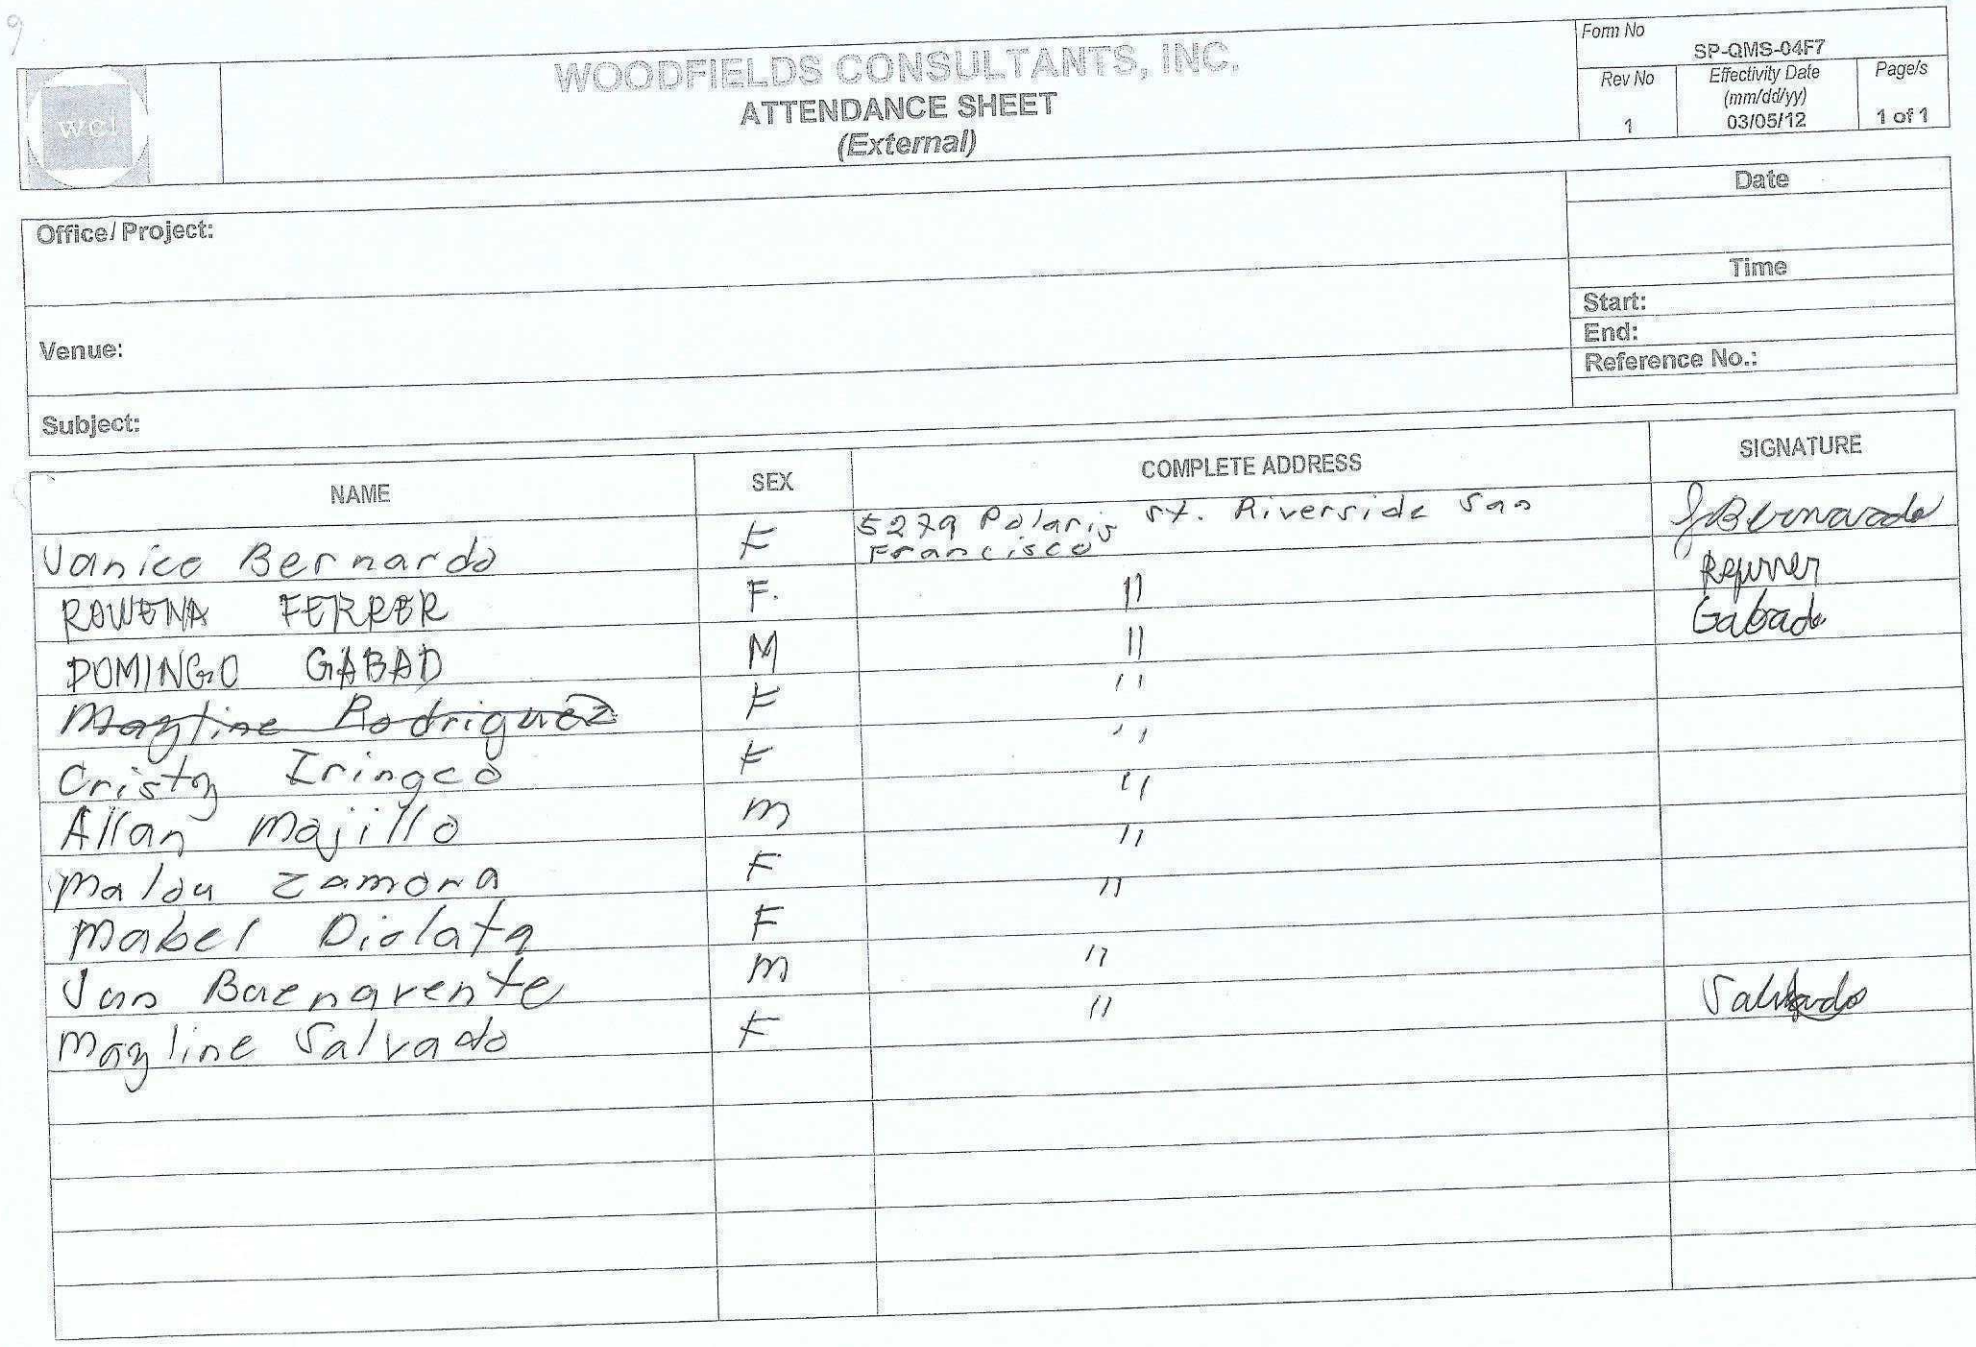 9
WCI
WOODFIELDS CONSULTANTS, INC.
ATTENDANCE SHEET
(External)
Form No
SP-QMS-04F7
Rev No
1
Effectivity Date
(mm/dd/yy)
03/05/12
Page/s
1 of 1
Office/ Project:
Venue:
Subject:
Date
Time
Start:
End:
Reference No.:
NAME SEX COMPLETE ADDRESS SIGNATURE
Janice Bernardo F 5279 Polaris st. Riverside San
Francisco
JBernardo
ROWENA FERRER F. "
DOMINGO GABAD M " Gabad
Mayline Rodriguez F "
Cristy Iringco F "
Allan Majillo m "
Malou Zamora F "
Mabel Diolata F "
Jan Baenavente m "
Mayline Salvado F " Salvado